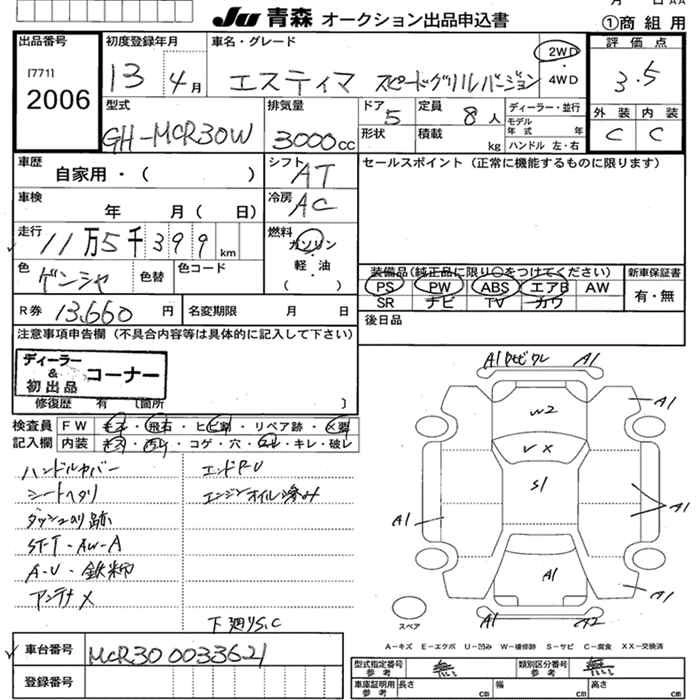 Ju 青森 オークション出品申込書
①商 組 用
出品番号
[771]
2006
初度登録年月
13 4月
車名・グレード
エスティマ スピードグリルバージョン
2WD
・
4WD
評 価 点
3.5
外 装
内 装
C
C
型式
GH-MCR30W
排気量
3000cc
ドア
5
定員
8 人
形状
積載
kg
ディーラー・並行
モデル
年 式 年
ハンドル 左・右
車歴
自家用・( )
シフト
AT
セールスポイント(正常に機能するものに限ります)
車検
年 月( 日)
冷房
AC
走行
11万5千399 km
燃料
ガソリン
・
軽 油
( )
色
ゲンシャ
色替
色コード
装備品(純正品に限り○をつけてください)
PS PW ABS エアB AW
SR ナビ TV カワ
新車保証書
有・無
R券
13,660 円
名変期限 月 日
後日品
注意事項申告欄(不具合内容等は具体的に記入して下さい)
ディーラー
&
初出品
コーナー
修復歴 有 〔箇所 〕
検査員
記入欄
FW
キズ・飛石・ヒビ割・リペア跡・X要
内装
・コゲ・穴・・キレ・破レ
ハンドルカバー
シートヘタリ
ダッシュのり跡
ST-T-AW-A
A-U-鉄粉
アンテナX
エンドPU
エンジンオイル滲み
下廻りS.C
A1
A1
W2
A1
VX
S1
A1
A1
A1
A1
A1
A2
スペア
A-キズ E-エクボ U-凹み W-補修跡 S-サビ C-腐食 XX-交換済
車台番号
MCR30 0033621
登録番号
型式指定番号
参 考
無
類別区分番号
参 考
無
車庫証明用
参 考
長さ
cm
幅
cm
高さ
cm